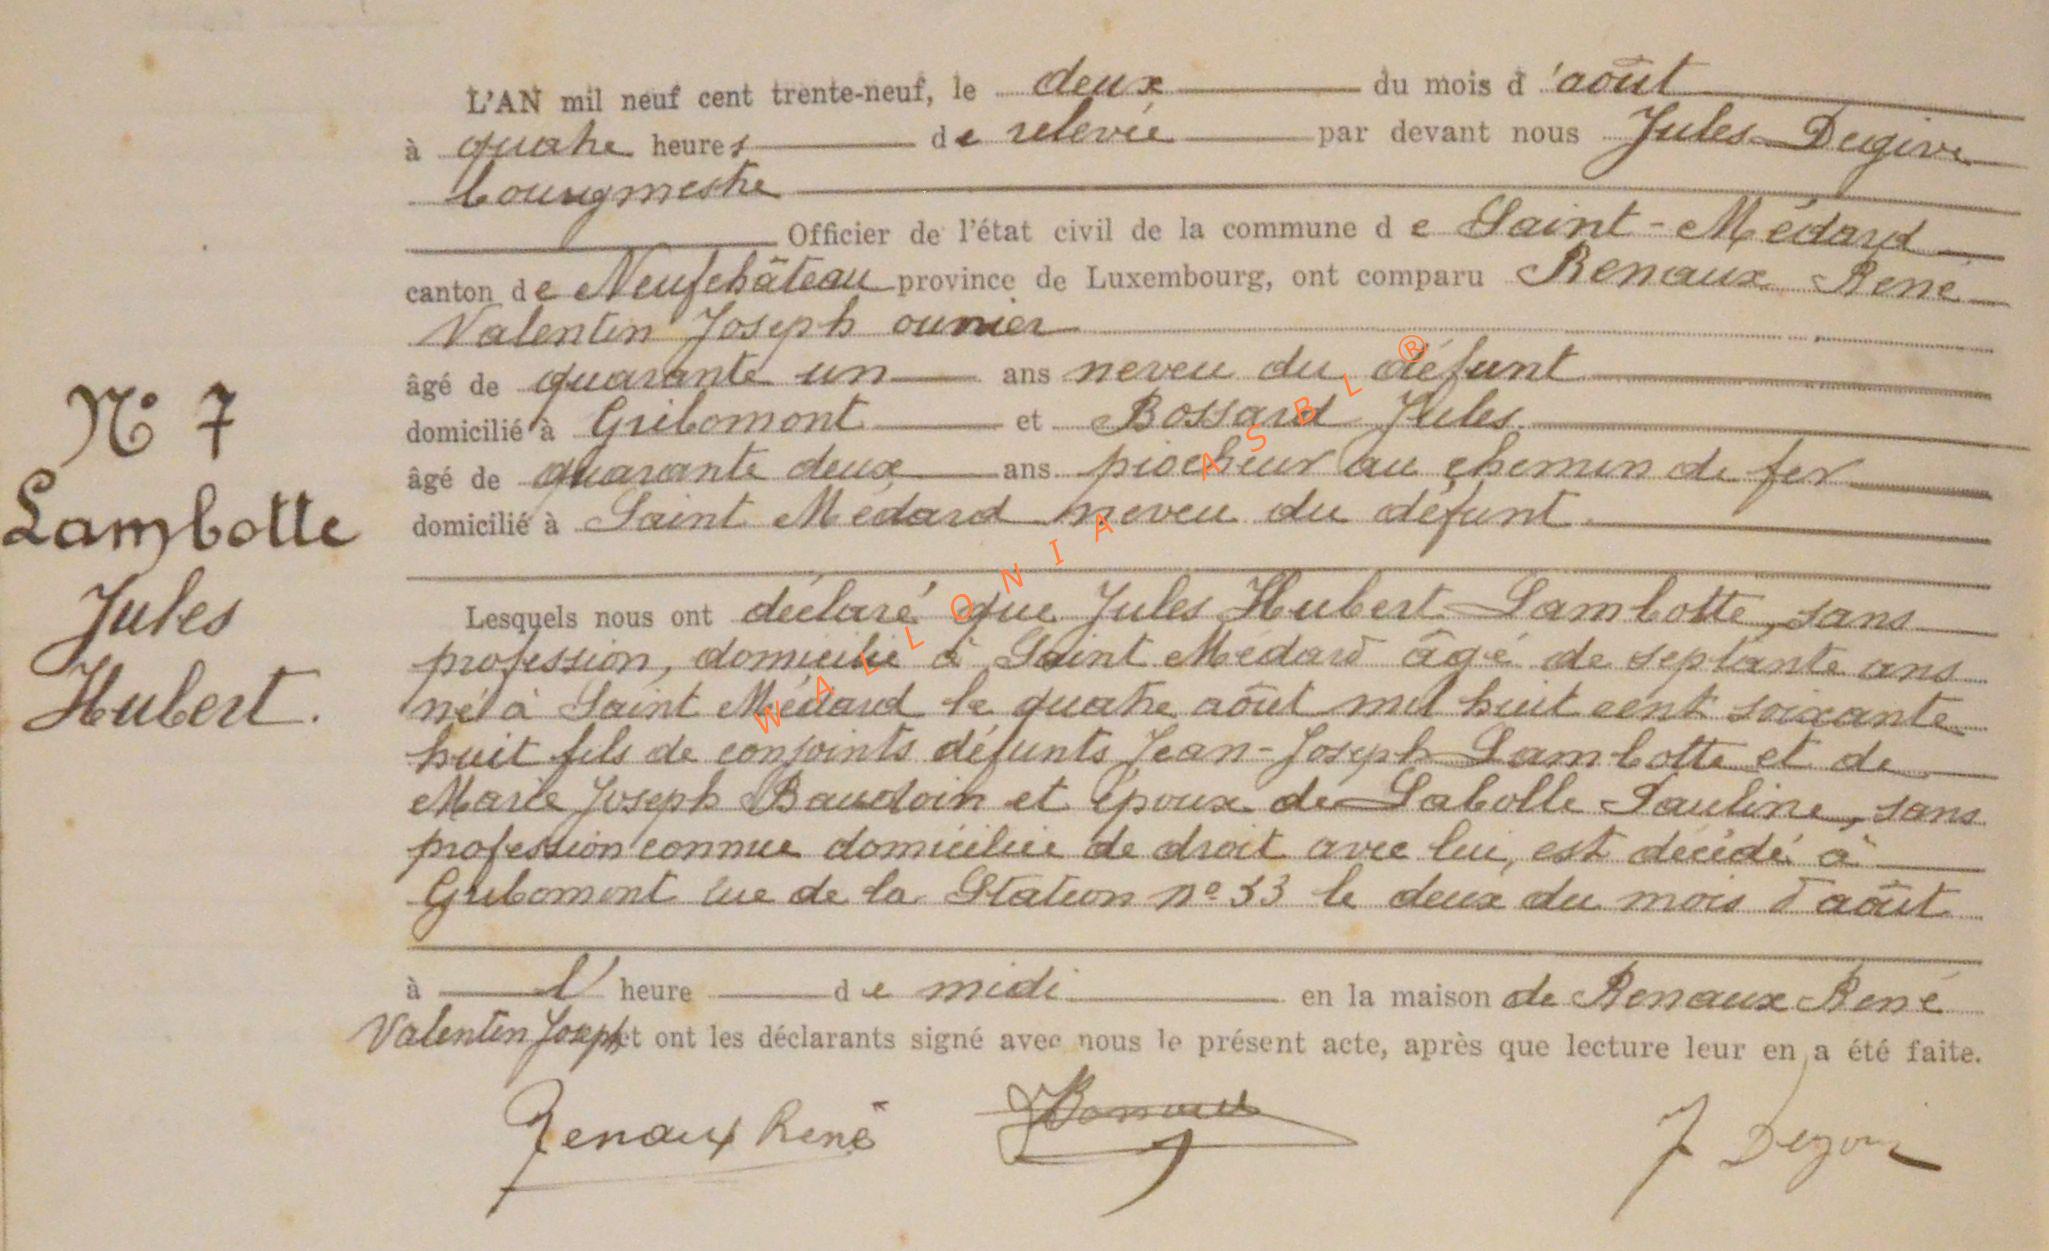 L'AN mil neuf cent trente-neuf, le deux du mois d'août
à quatre heures de relevée par devant nous Jules Degive
bourgmestre
Officier de l'état civil de la commune de Saint-Médard
canton de Neufchâteau province de Luxembourg, ont comparu Renaux René
Valentin Joseph ouvrier
âgé de quarante un ans neveu du défunt
domicilié à Gribomont et Bossard Jules
âgé de quarante deux ans piocheur au chemin de fer
domicilié à Saint Médard neveu du défunt
N° 7
Lambotte
Jules
Hubert.
Lesquels nous ont déclaré que Jules Hubert Lambotte, sans
profession, domicilié à Saint Médard âgé de septante ans
né à Saint Médard le quatre août mil huit cent soixante
huit fils de conjoints défunts Jean-Joseph Lambotte et de
Marie Joseph Baudoin et époux de Labolle Pauline, sans
profession connue domiciliée de droit avec lui, est décédé à
Gribomont rue de la Station n° 33 le deux du mois d'août
à l'heure de midi en la maison de Renaux René
Valentin Joseph et ont les déclarants signé avec nous le présent acte, après que lecture leur en a été faite.
Renaux René
WALLONIA ASBL ®